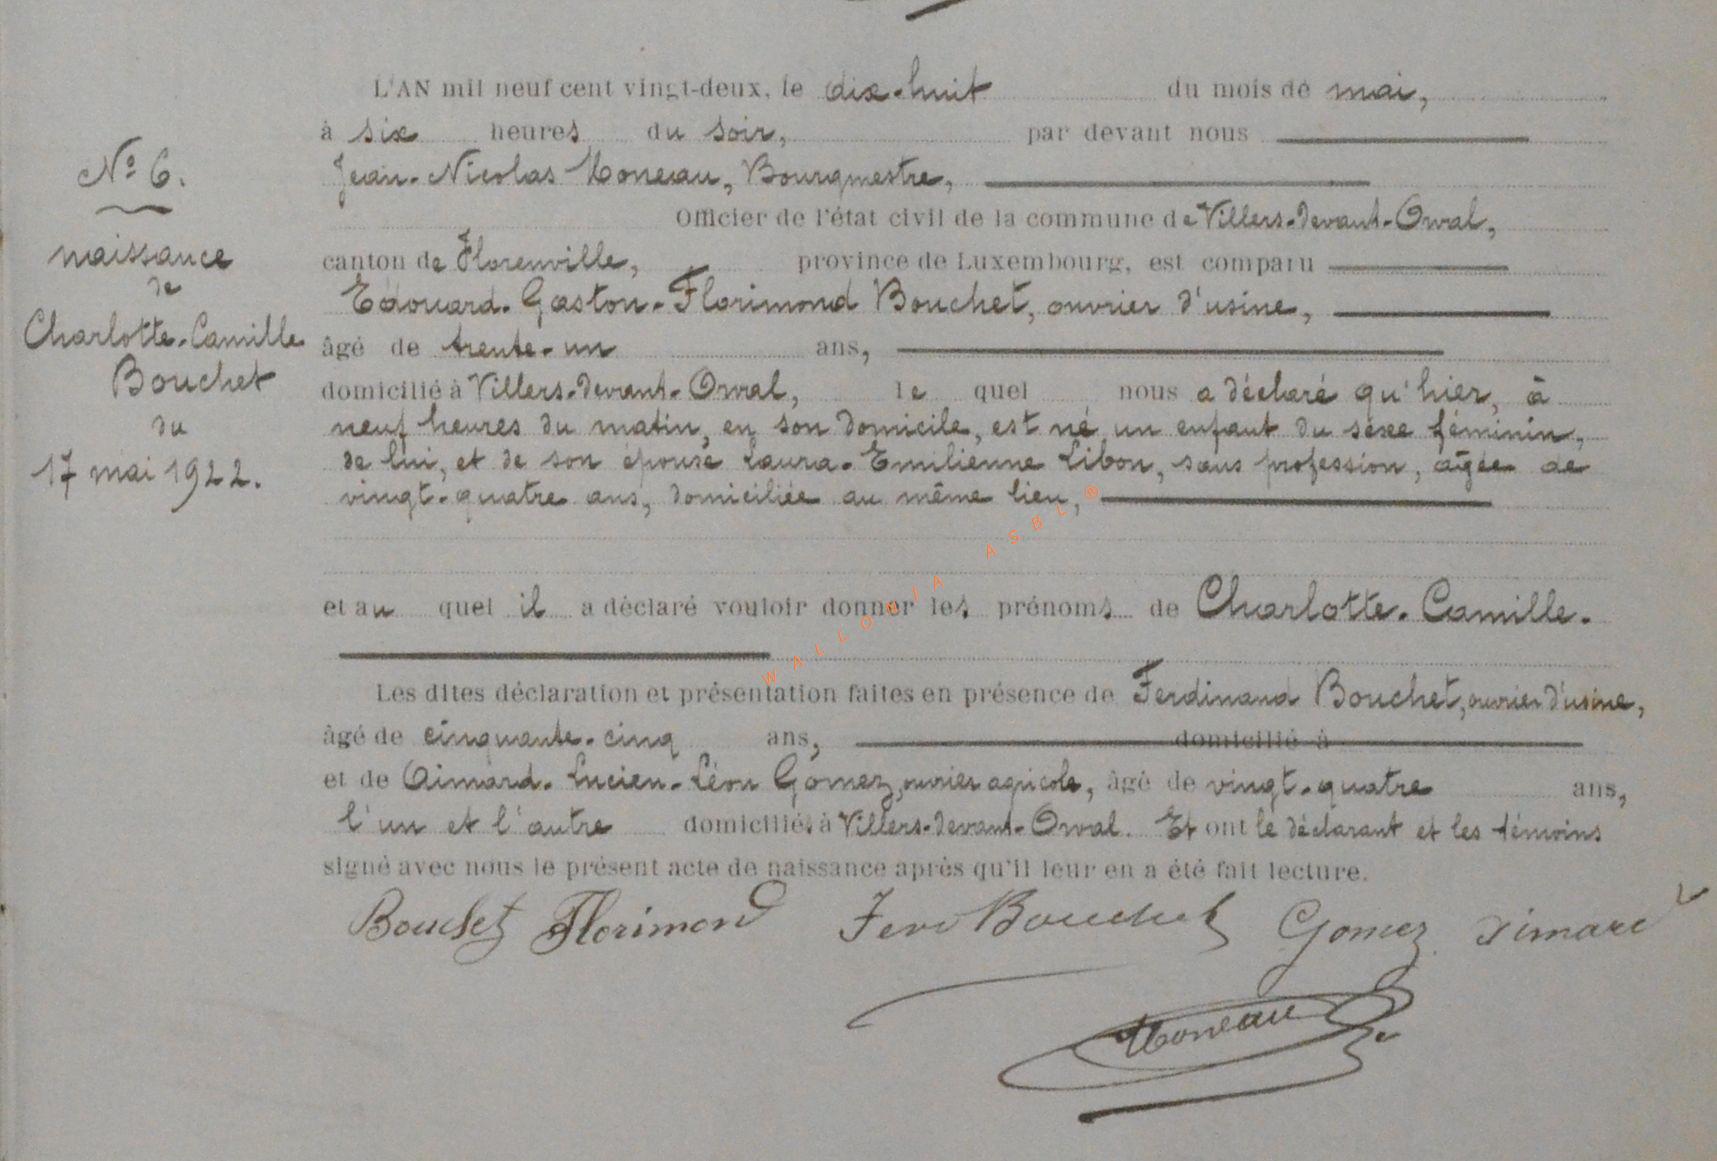 L'AN mil neuf cent vingt-deux, le dix-huit du mois de mai,
à six heures du soir, par devant nous
Jean-Nicolas Moneau, Bourgmestre,
Officier de l'état civil de la commune de Villers-devant-Orval,
canton de Florenville, province de Luxembourg, est comparu
Edouard-Gaston-Florimond Bouchet, ouvrier d'usine,
âgé de trente-un ans,
domicilié à Villers-devant-Orval, le quel nous a déclaré qu'hier, à
neuf heures du matin, en son domicile, est né un enfant du sexe féminin,
de lui, et de son épouse Laura-Emilienne Libon, sans profession, âgée de
vingt-quatre ans, domiciliée au même lieu,
et au quel il a déclaré vouloir donner les prénoms de Charlotte-Camille.
Les dites déclaration et présentation faites en présence de Ferdinand Bouchet, ouvrier d'usine,
âgé de cinquante-cinq ans, domicilié à
et de Aimard-Lucien-Léon Gomez, ouvrier agricole, âgé de vingt-quatre ans,
l'un et l'autre domiciliés à Villers-devant-Orval. Et ont le déclarant et les témoins
signé avec nous le présent acte de naissance après qu'il leur en a été fait lecture.
Bouchet Florimond Ferd Bouchet Gomez Aimard
Moneau
No 6.
naissance
de
Charlotte-Camille
Bouchet
du
17 mai 1922.
WALLONIA ASBL ®